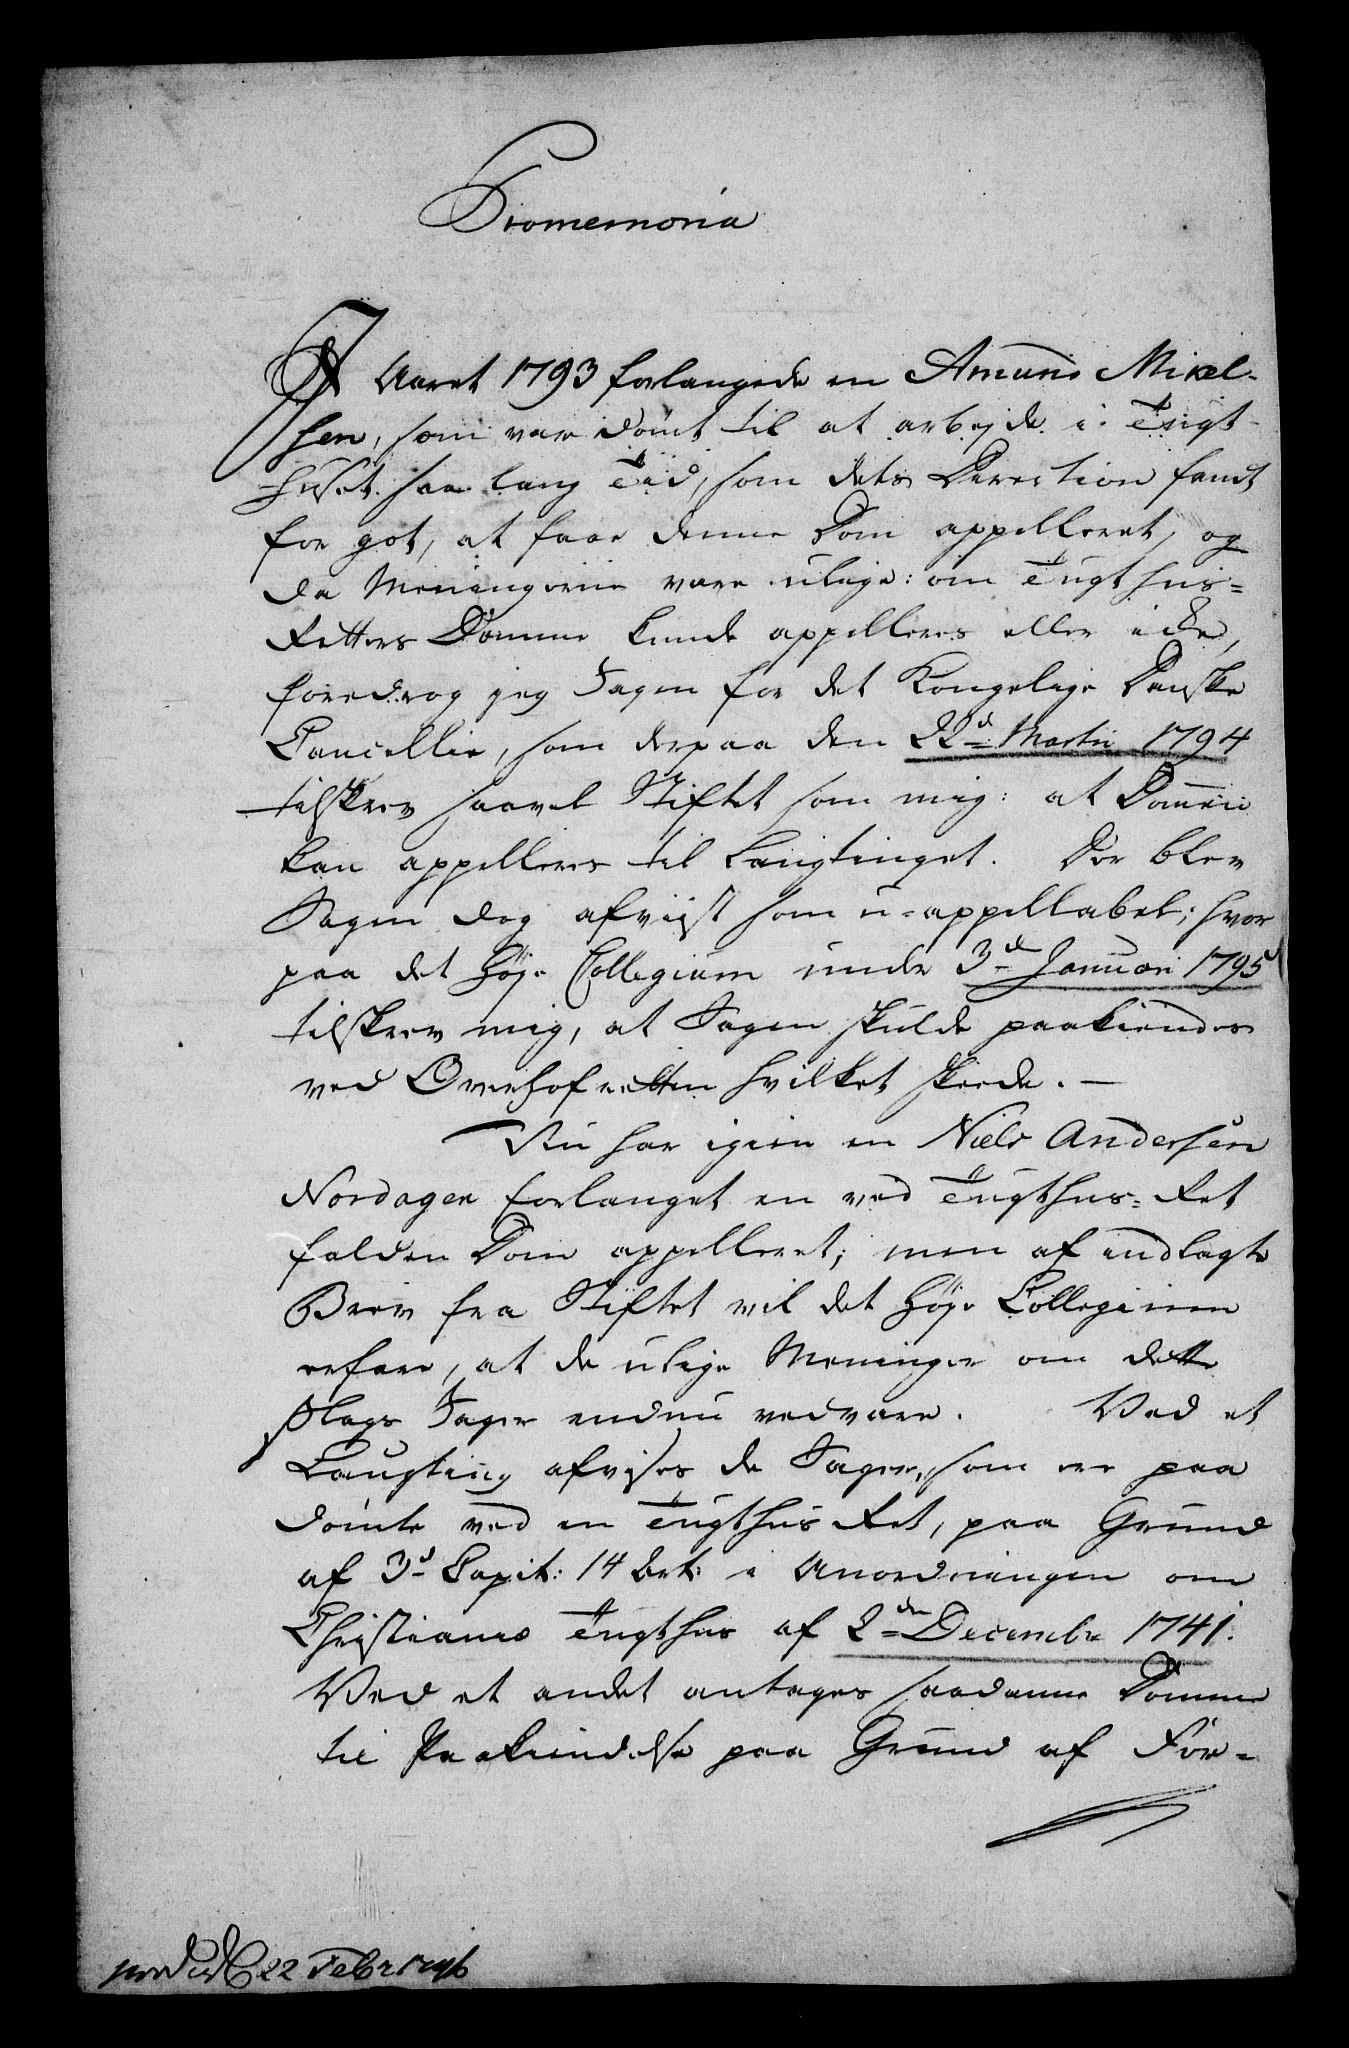 Promemoria
I Aaret 1793 forlangede en Amund Mikel-
sen, som var dömt til at arbejde i Tugt-
huset saa lang Tid, som dets Direction fandt
for got, at faae denne Dom appelleret, og
da Meningerne vare ulige: om Tugthus-
Retters Domme kunde appelleres eller icke,
foredrog jeg Sagen for det Kongelige Danske
Cancellie, som derpaa den 22d Martii 1794
tilskrev saavel Stiftet som mig: at Dommen
kan appelleres til Laugtinget. Der blev
Sagen dog afviist som u-appellabel; hvor
paa det höje Collegium under 3d Januari 1795
tilskrev mig, at Sagen skulde paakiendes
ved Overhofretten hvilket skeede. —
Nu har igien en Niels Andersen
Nordagen forlanget en ved Tugthus-Ret
falden Dom appelleret; men af indlagte
Brev fra Stiftet vil det höje Collegium
erfare, at de ulige Meninger om dette
slags Sager endnu vedvare. Ved et
Laugting afvises de Sager, som ere paa
dömte ved en Tugthus Ret, paa Grund
af 3d Capit: 14 Art: i Anordningen om
Christianiæ Tugthus af 2den Decembr 1741.
Ved et andet antages saadanne Domme
til Paakiendelse paa Grund af For-
22 Febr 1796